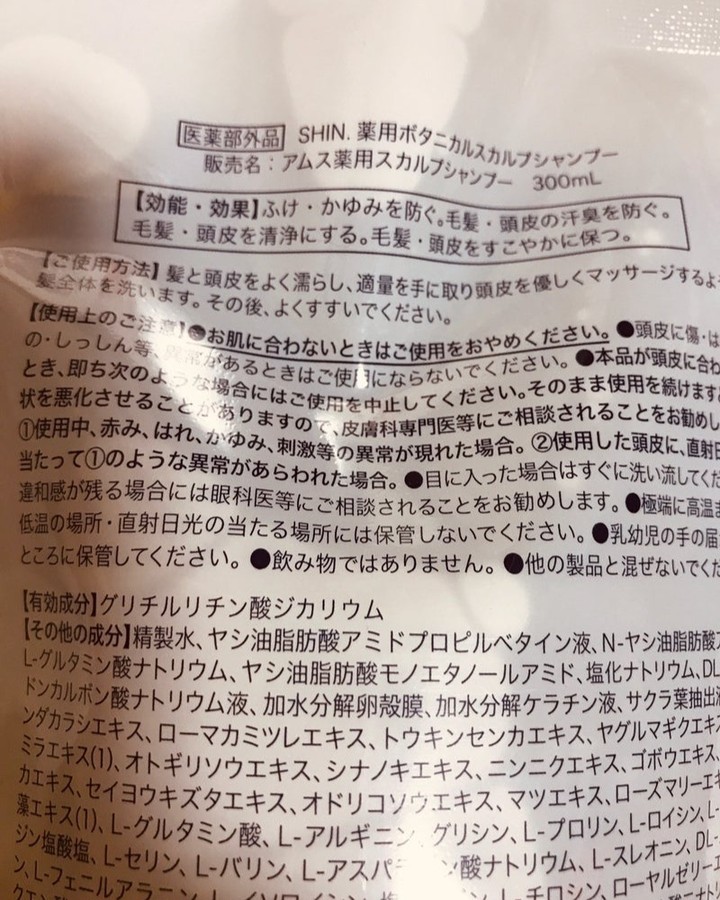 医薬部外品 SHIN. 薬用ボタニカルスカルプシャンプー
販売名：アムス薬用スカルプシャンプー 300mL
【効能・効果】ふけ・かゆみを防ぐ。毛髪・頭皮の汗臭を防ぐ。
毛髪・頭皮を清浄にする。毛髪・頭皮をすこやかに保つ。
【ご使用方法】髪と頭皮をよく濡らし、適量を手に取り頭皮を優しくマッサージするよ
髪全体を洗います。その後、よくすすいでください。
【使用上のご注意】●お肌に合わないときはご使用をおやめください。●頭皮に傷・は
の・しっしん等、異常があるときはご使用にならないでください。●本品が頭皮に合わ
とき、即ち次のような場合にはご使用を中止してください。そのまま使用を続けます
状を悪化させることがありますので、皮膚科専門医等にご相談されることをお勧めし
①使用中、赤み、はれ、かゆみ、刺激等の異常が現れた場合。②使用した頭皮に、直射日
当たって①のような異常があらわれた場合。●目に入った場合はすぐに洗い流してくだ
違和感が残る場合には眼科医等にご相談されることをお勧めします。●極端に高温ま
低温の場所・直射日光の当たる場所には保管しないでください。●乳幼児の手の届
ところに保管してください。●飲み物ではありません。●他の製品と混ぜないでくだ
【有効成分】グリチルリチン酸ジカリウム
【その他の成分】精製水、ヤシ油脂肪酸アミドプロピルベタイン液、N-ヤシ油脂肪酸
L-グルタミン酸ナトリウム、ヤシ油脂肪酸モノエタノールアミド、塩化ナトリウム、DL
ドンカルボン酸ナトリウム液、加水分解卵殻膜、加水分解ケラチン液、サクラ葉抽出液
ンダカラシエキス、ローマカミツレエキス、トウキンセンカエキス、ヤグルマギクエキ
ミラエキス(1)、オトギリソウエキス、シナノキエキス、ニンニクエキス、ゴボウエキス、
カエキス、セイヨウキズタエキス、オドリコソウエキス、マツエキス、ローズマリーエキ
藻エキス(1)、L-グルタミン酸、L-アルギニン、グリシン、L-プロリン、L-ロイシン、L-
ジン塩酸塩、L-セリン、L-バリン、L-アスパ ン酸ナトリウム、L-スレオニン、DL-
ン、L-フェニルアラニン、L-イソロイシン、 L-チロシン、ローヤルゼリーエ